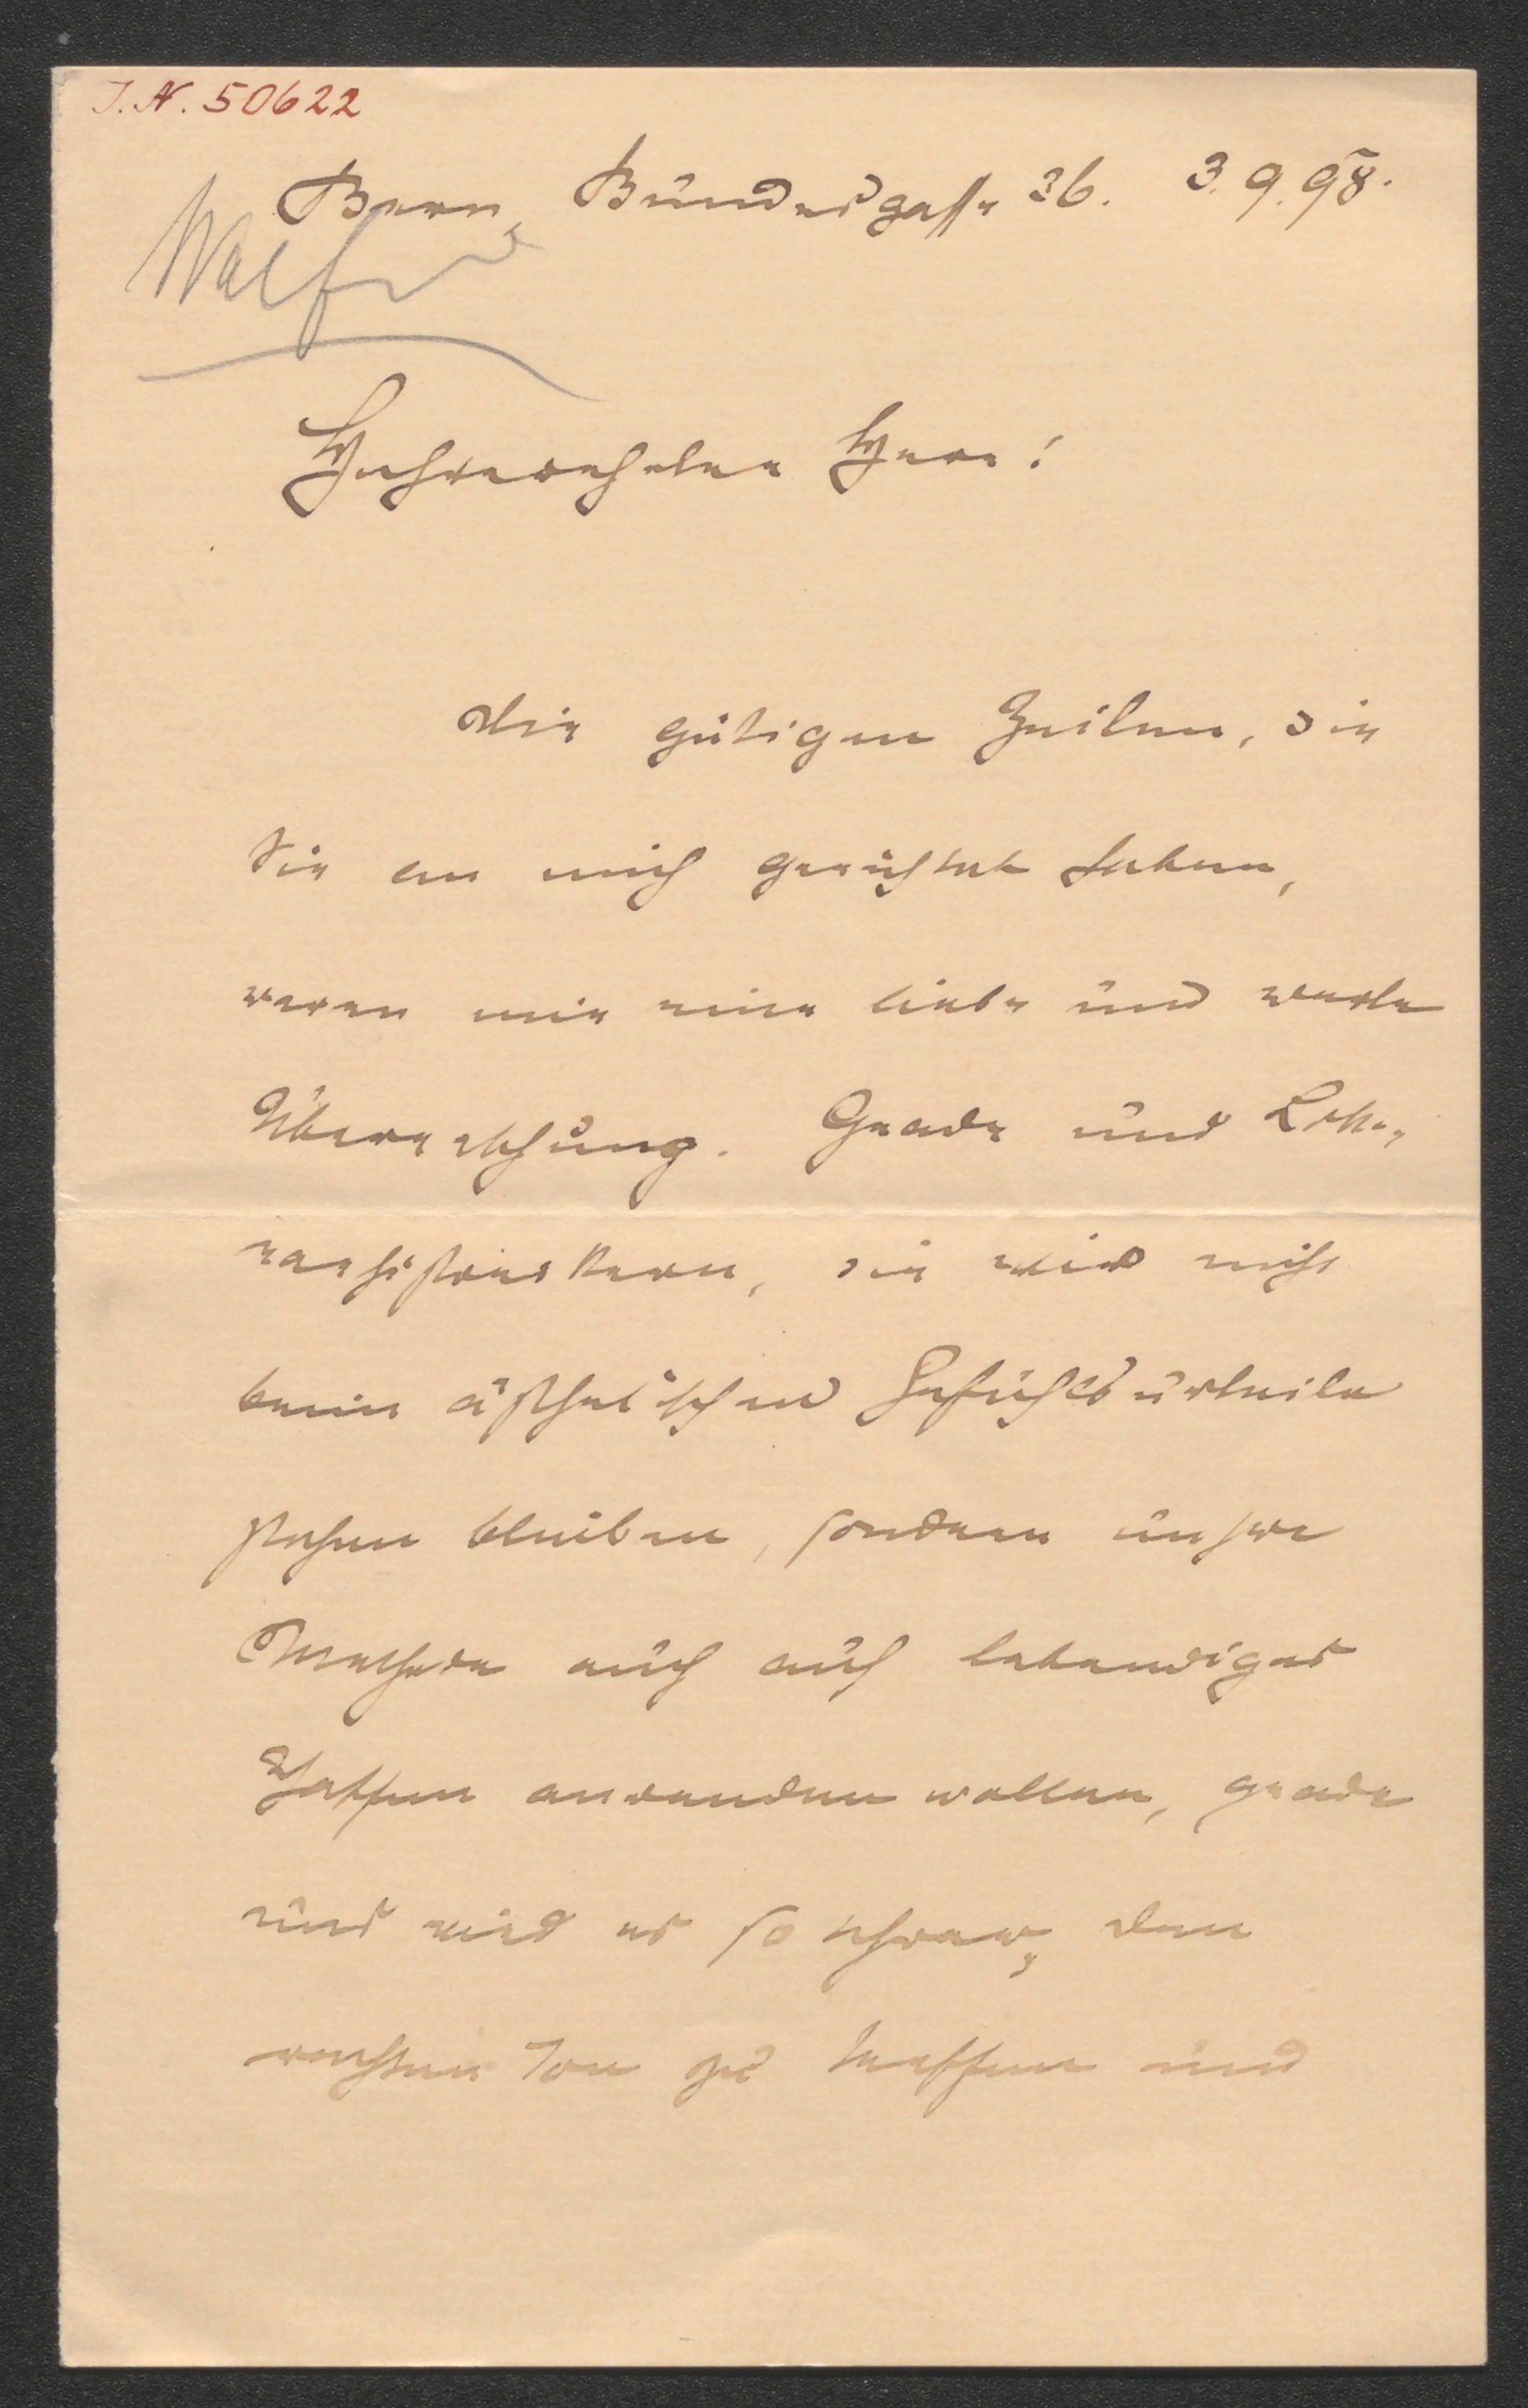 J. N. 50622
Bern, Bundesgasse 36. 3. 9. 98.
Hochverehrter Herr!
Die gütigen Zeilen, die
Sie an mich gerichtet haben,
waren mir eine liebe und werte
Überraschung. Grade uns Litte-
rarhistorikern, die wir nicht
beim ästhetischen Gefühlsurteile
stehen bleiben, sondern unsere
Methode auch auf lebendiges
Schaffen anwenden wollen, grade
uns wird es so schwer, den
rechten Ton zu treffen und